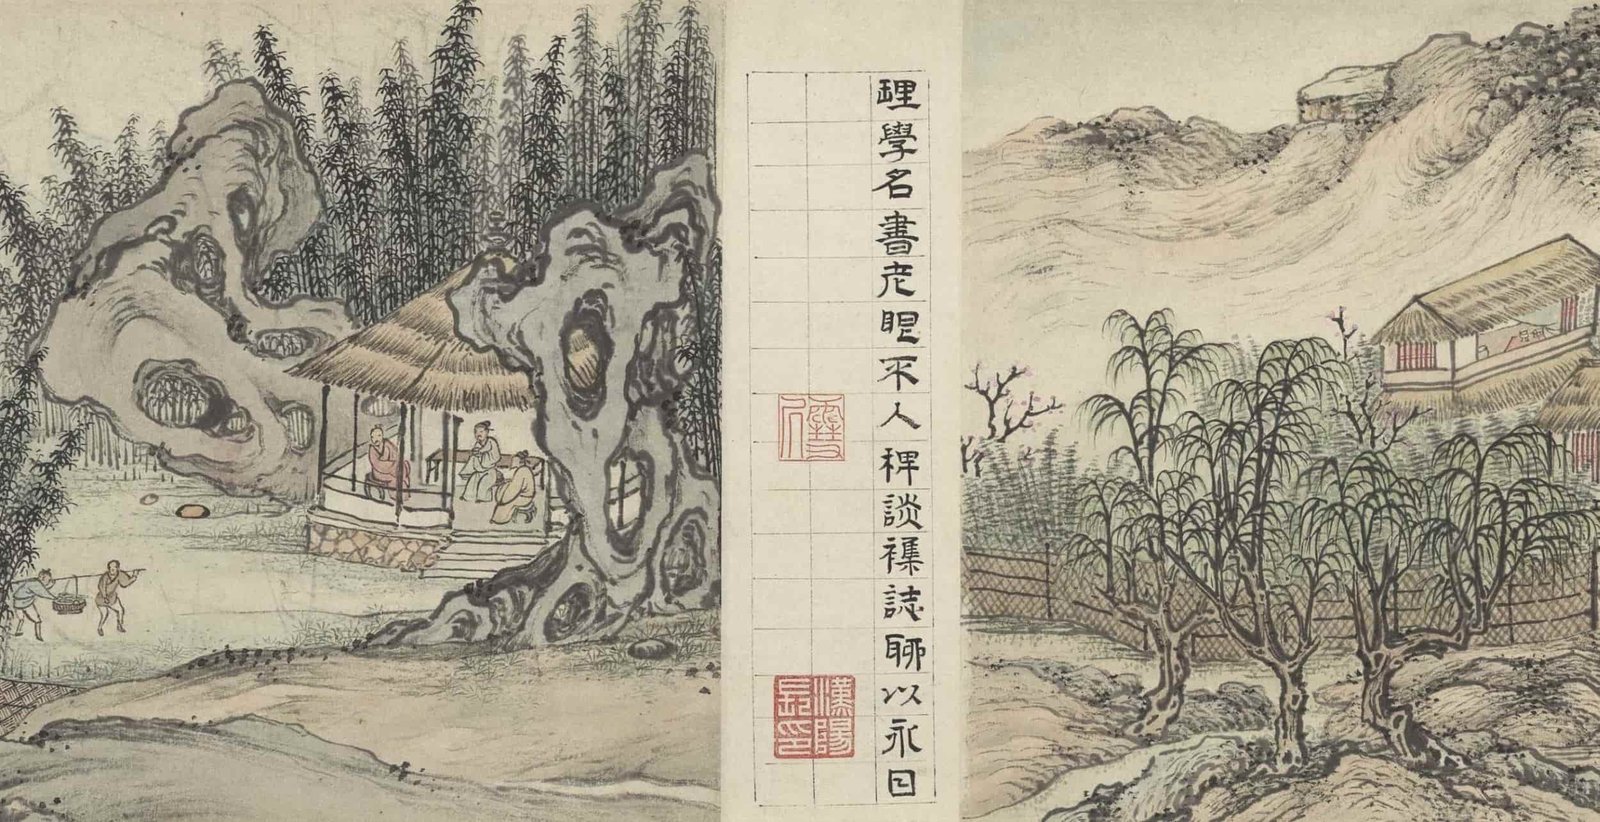 理學名書老眼不入稗談襍誌聊以永日
漢陽長印